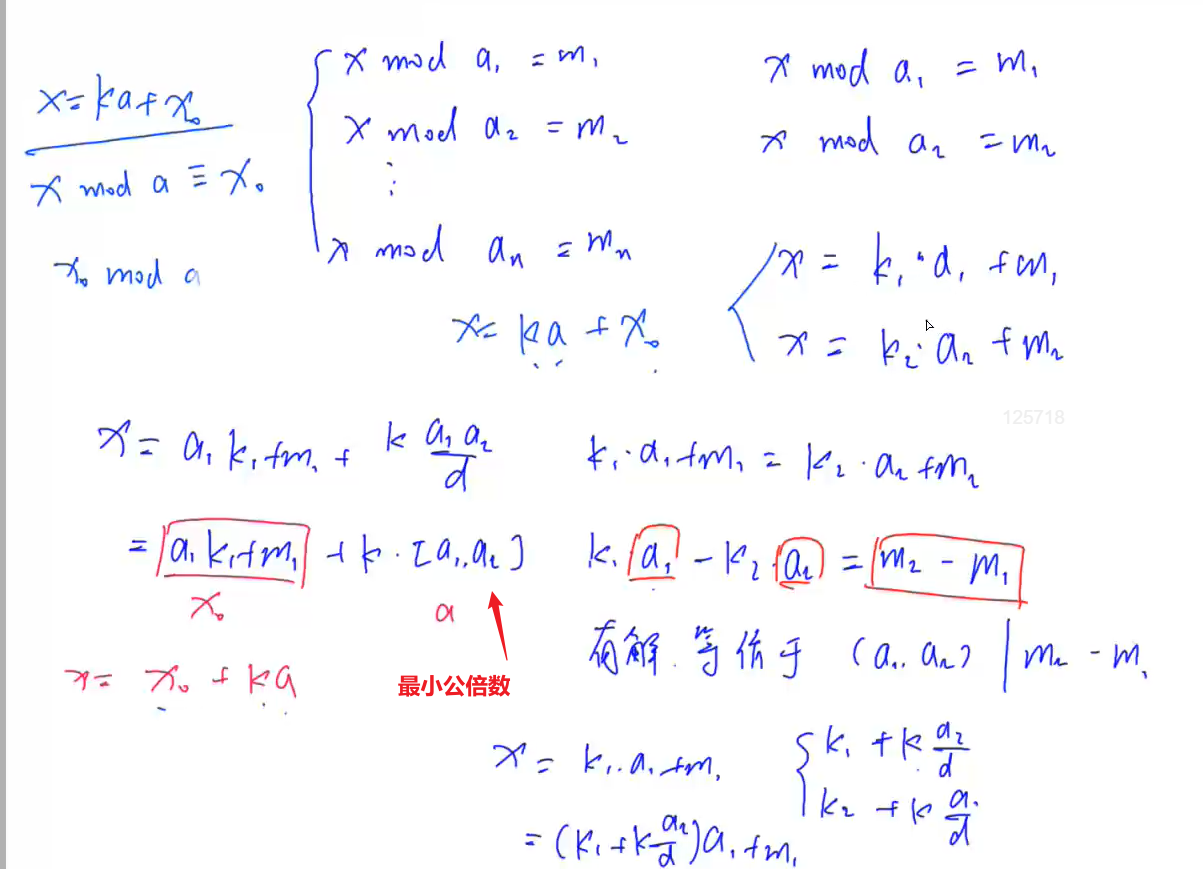 x=ka+x₀
x mod a ≡ x₀
x₀ mod a
x mod a₁ = m₁
x mod a₂ = m₂
⋮
x mod aₙ = mₙ
x = ka + x₀
x mod a₁ = m₁
x mod a₂ = m₂
x = k₁·a₁ + m₁
x = k₂·a₂ + m₂
125718
x = a₁k₁+m₁ + k a₁a₂/d
= a₁k₁+m₁ + k·[a₁,a₂]
x₀ a
最小公倍数
x = x₀ + ka
k₁·a₁+m₁ = k₂·a₂+m₂
k₁a₁ - k₂·a₂ = m₂ - m₁
有解.等价于 (a₁,a₂) | m₂ - m₁
x = k₁·a₁+m₁
= (k₁+k a₂/d)a₁+m₁
k₁ + k a₂/d
k₂ + k a₁/d